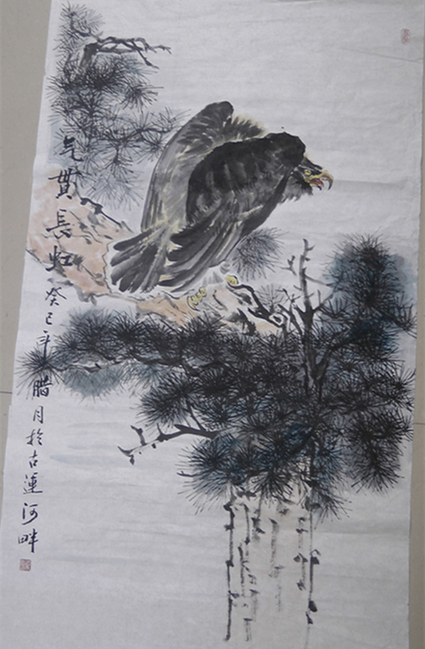 气贯長虹
癸巳年腊月於古運河畔